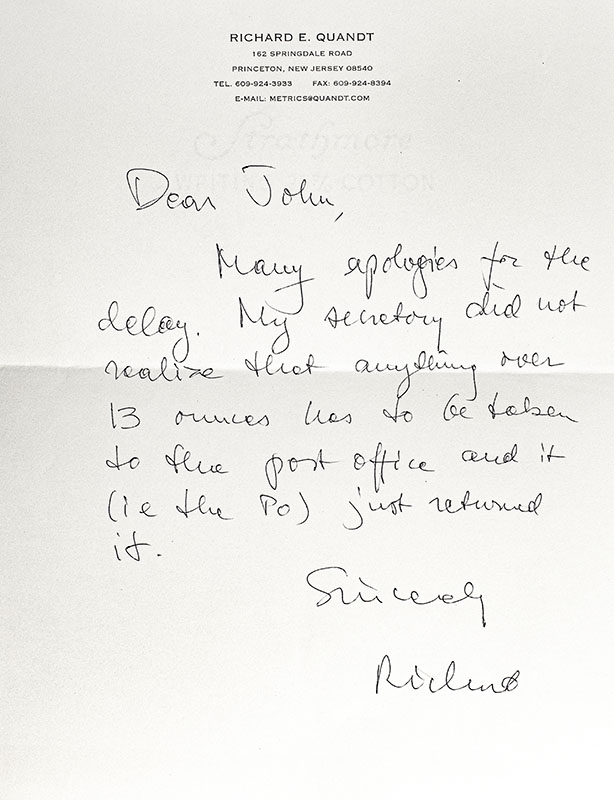 RICHARD E. QUANDT
162 SPRINGDALE ROAD
PRINCETON, NEW JERSEY 08540
TEL. 609-924-3933 FAX: 609-924-8394
E-MAIL: METRICS@QUANDT.COM
Strathmore
WRITING 25% COTTON
Dear John,
Many apologies for the
delay. My secretary did not
realize that anything over
13 ounces has to be taken
to the post office and it
(ie the PO) just returned
it.
Sincerely
Richard